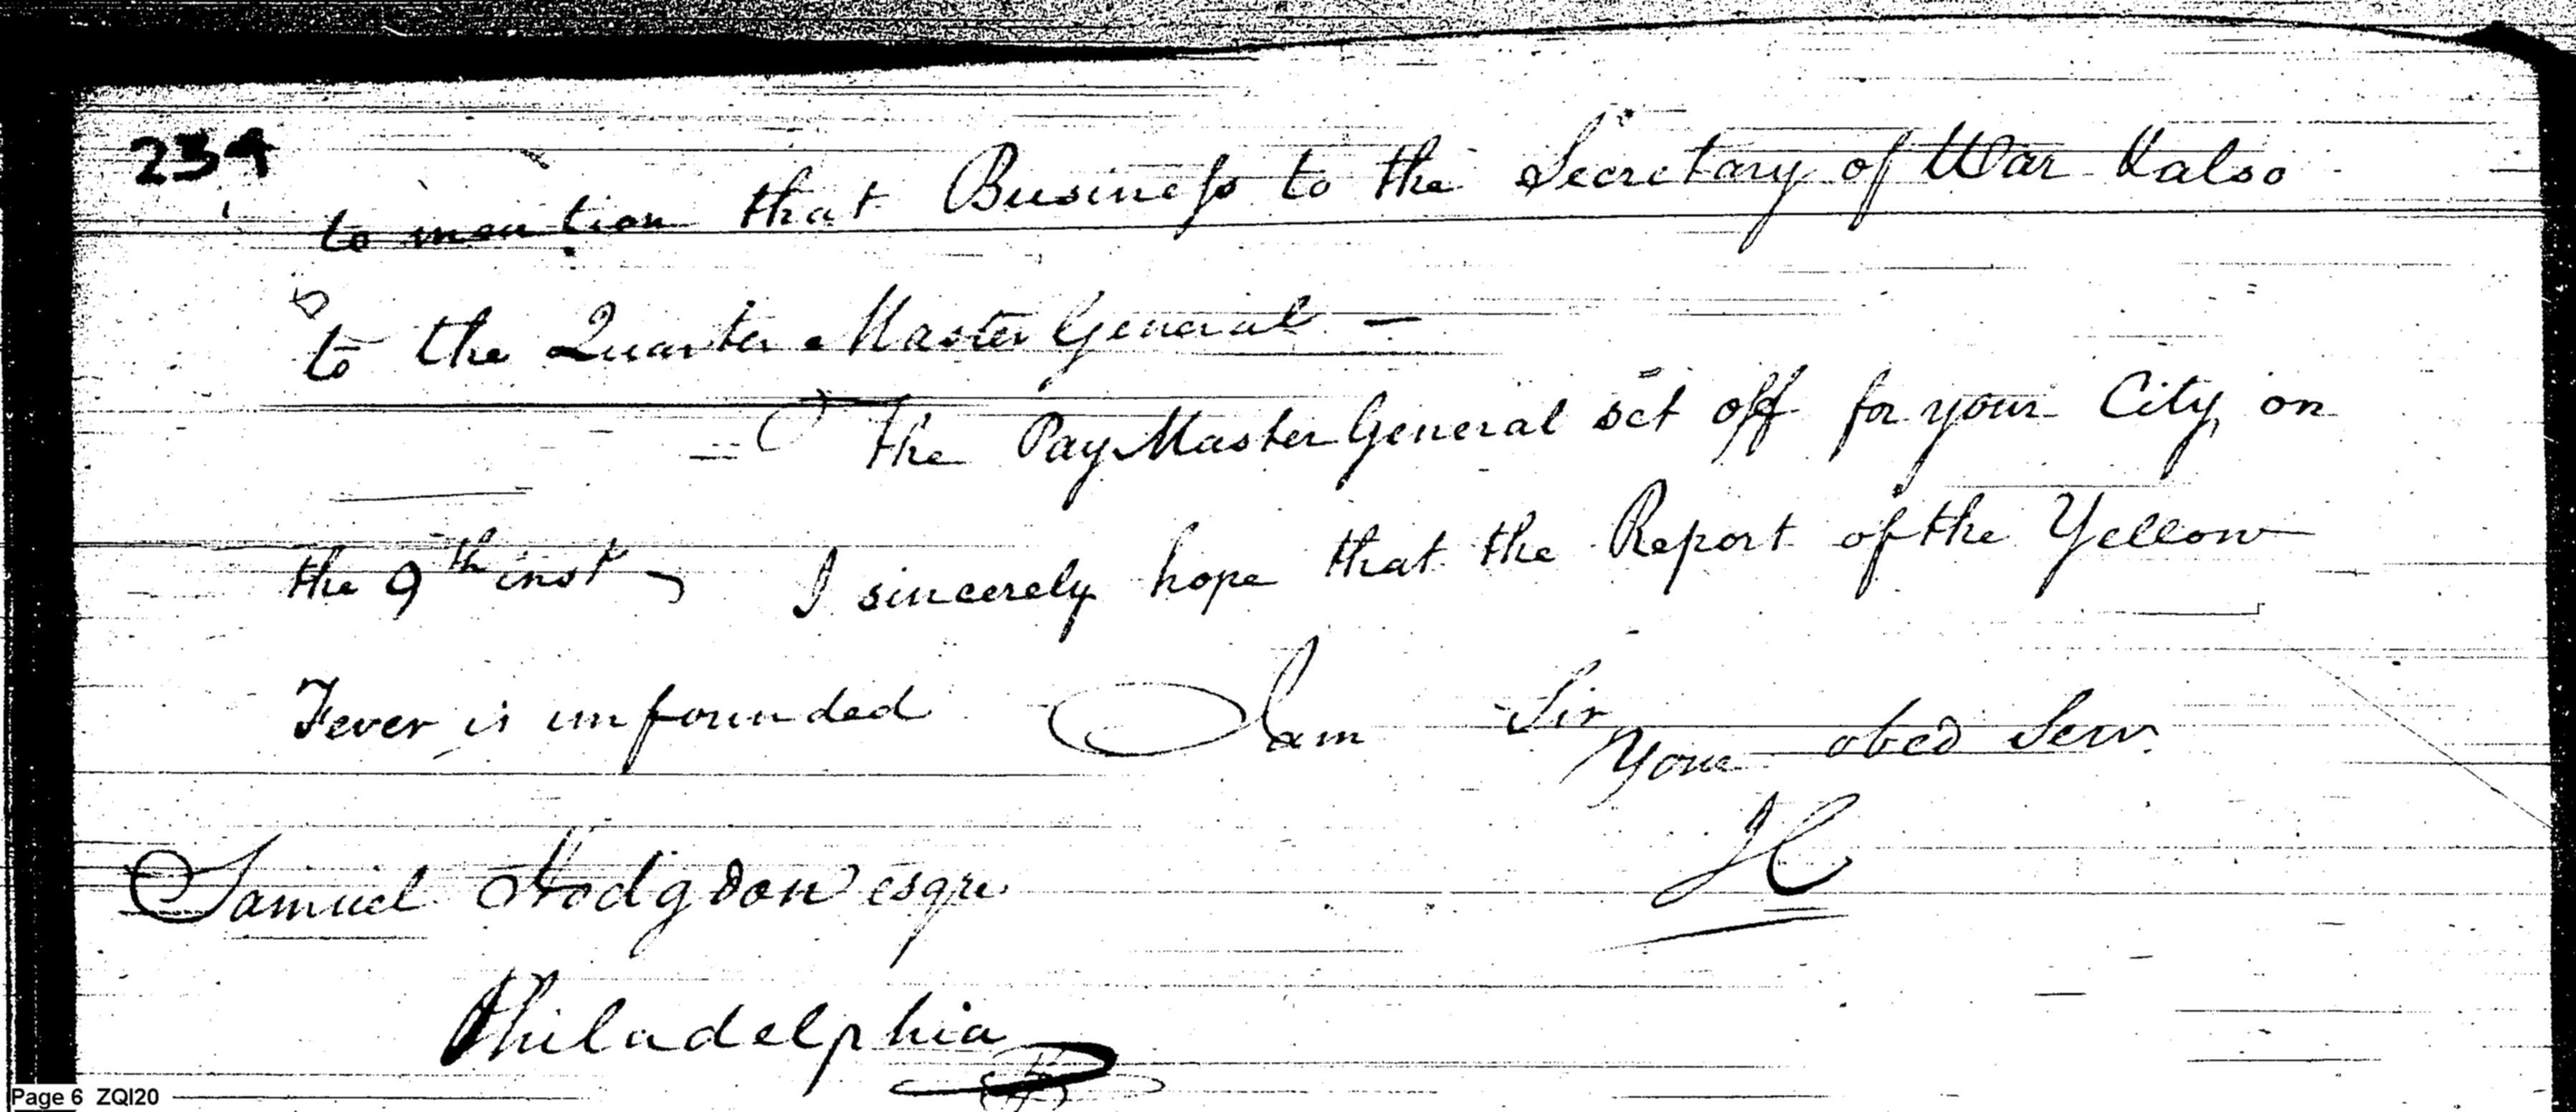 234
to mention that Business to the Secretary of War & also
to the Quarter Master General —
The Pay Master General set off for your City, on
the 9th inst I sincerely hope that the Report of the Yellow
Fever is unfounded I am Sir
Your obed Serv.
JC
Samuel Hodgdon esqre
Philadelphia
Page 6 ZQI20